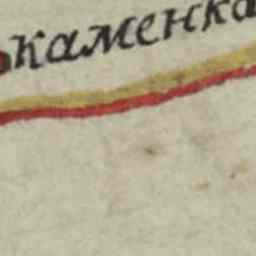 каменка